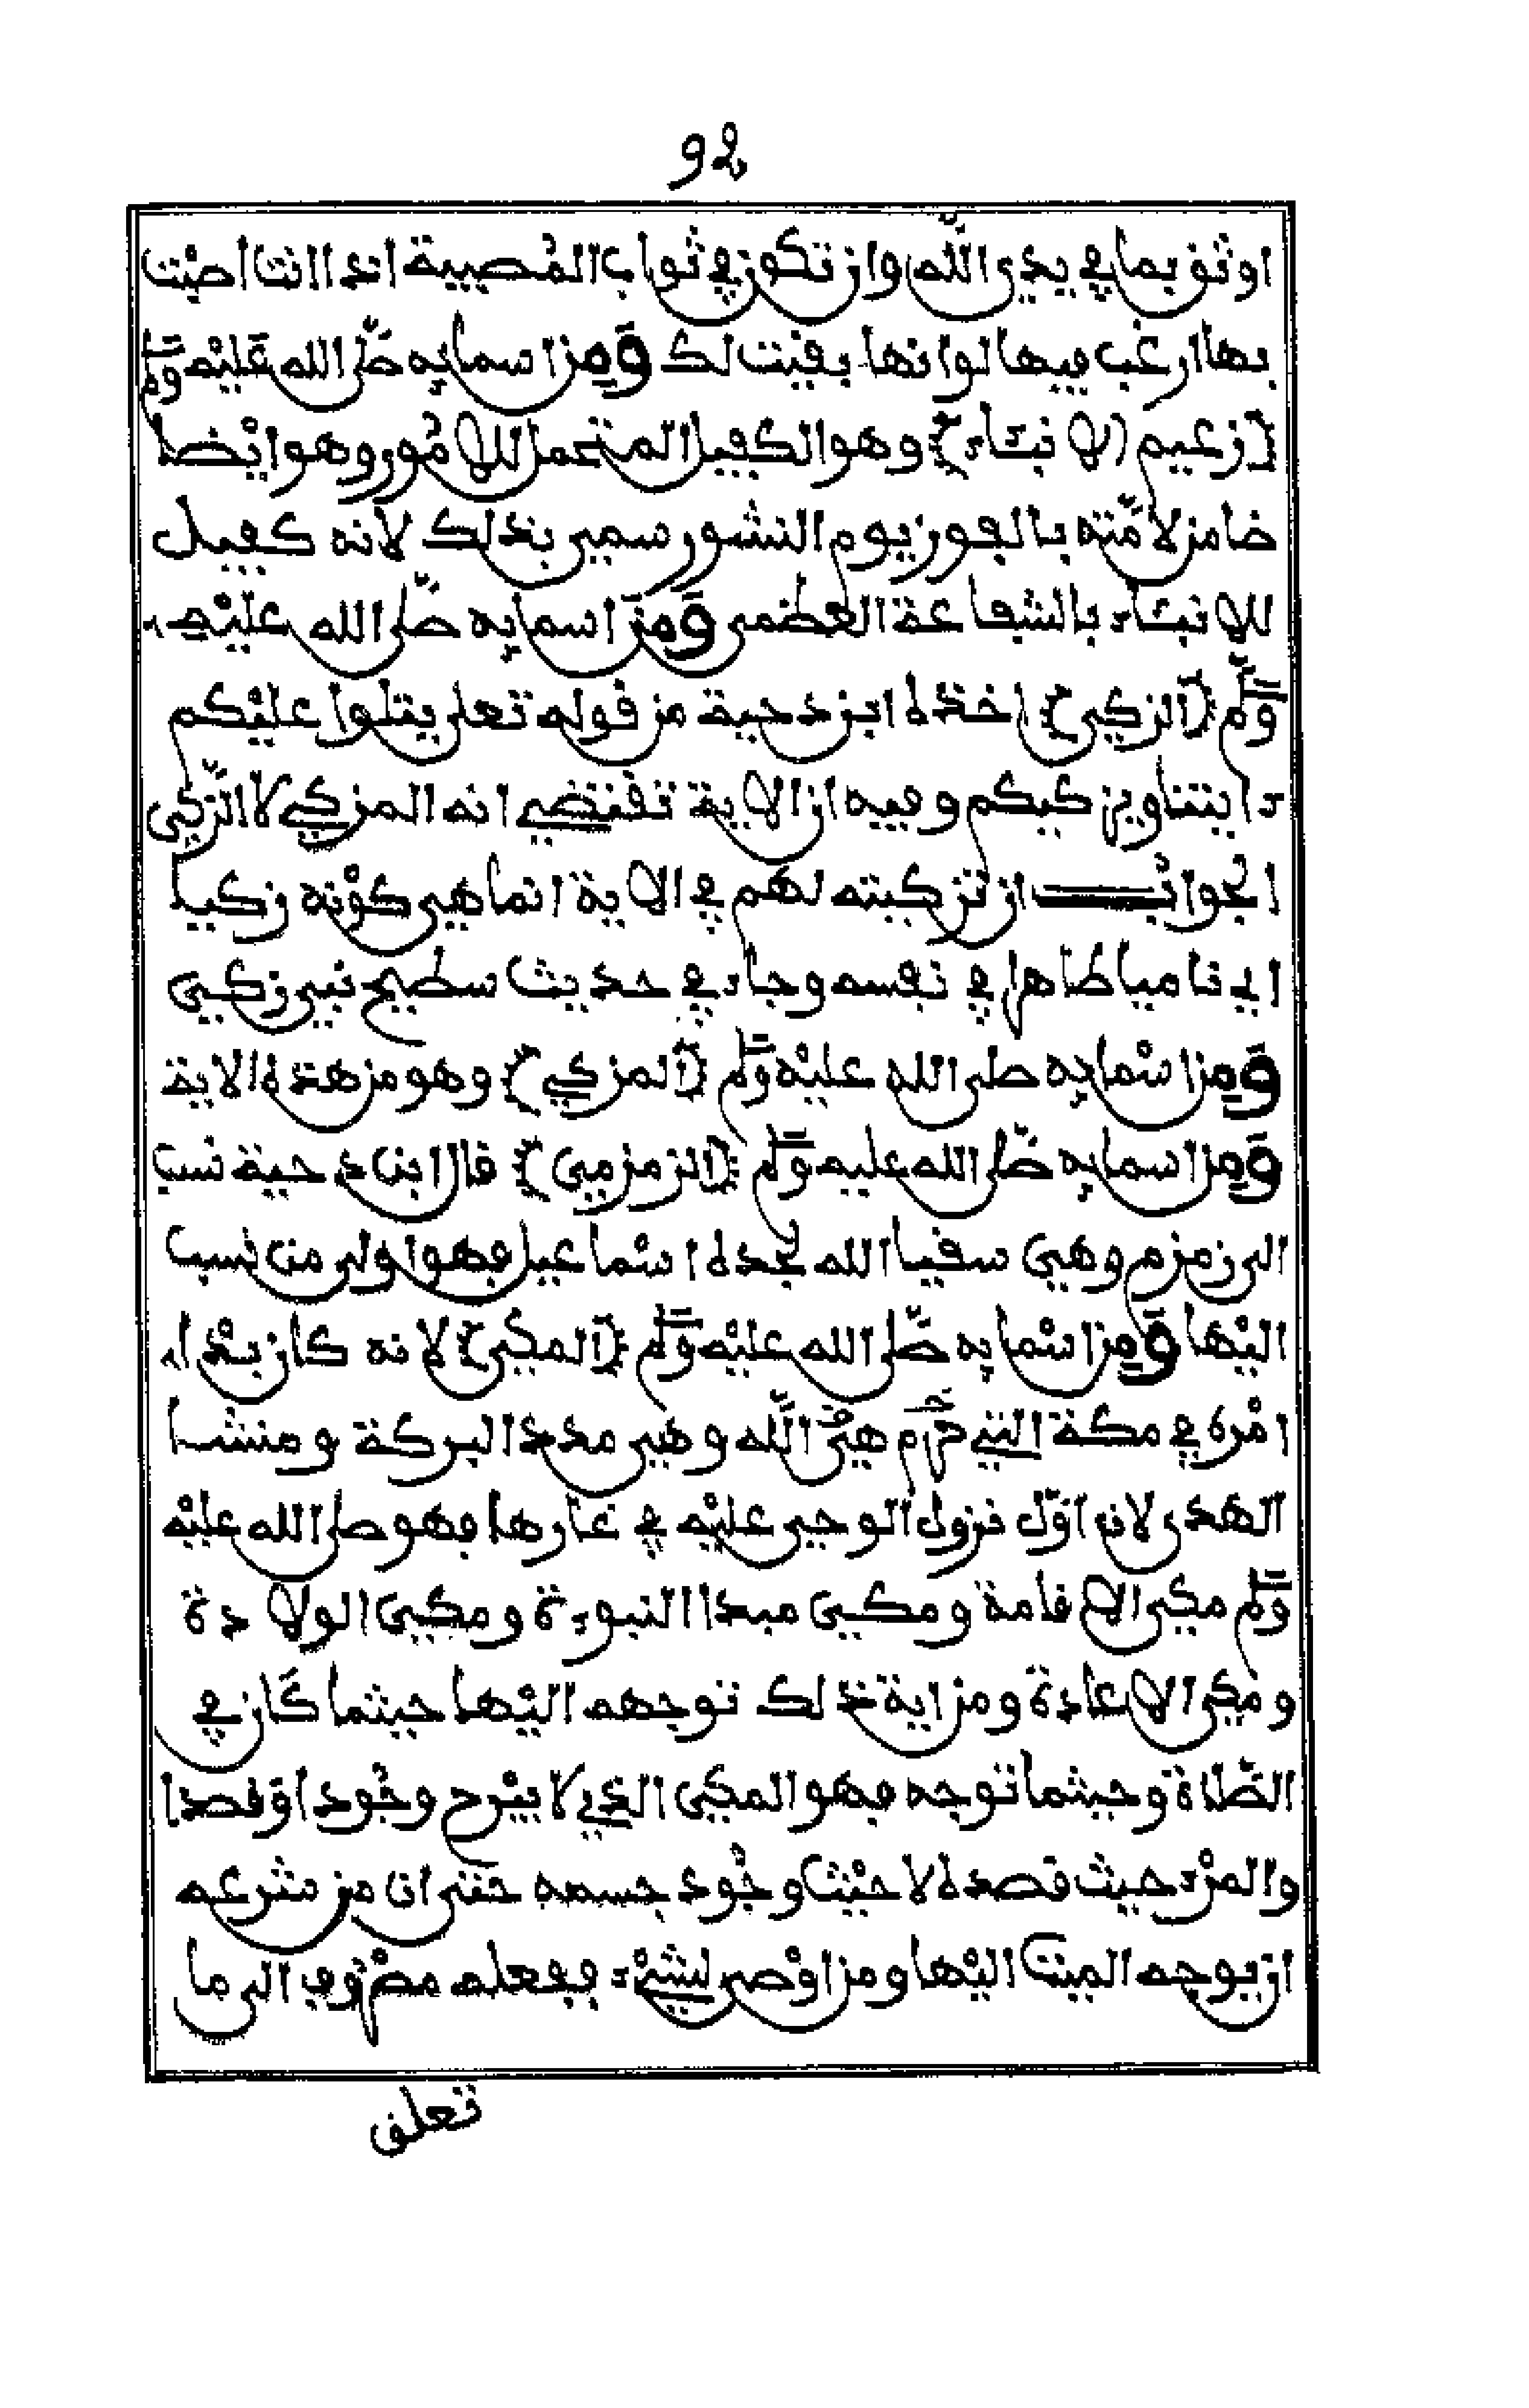 92
اوثق بما في يدي الله وان تكون في ثواب المصيبة اذا انت اصبت
بها ارغب فيها لو انها بقيت لك ومن اسمايه صلى الله عليه وسلم
{زعيم الانبياء} وهو الكفيل المتحمل للامور وهو ايضا
ضامن لامته بالفوز يوم النشور سمي بذلك لانه كفيل
للانبياء بالشفاعة العظمى ومن اسمايه صلى الله عليه
وسلم {الزكي} اخذه ابن دحية من قوله تعلى يتلوا عليكم
ءايتنا ويزكيكم وفيه ان الاية تقتضي انه المزكي لا الزكي
الجواب ان تزكيته لهم في الاية انما هي كونه زكيا
اي ناميا طاهرا في نفسه وجاء في حديث سطيح نبي زكي
ومن اسمايه صلى الله عليه وسلم {المزكي} وهو من هذه الاية
ومن اسمايه صلى الله عليه وسلم {الزمزمي} قال ابن دحية نسب
الى زمزم وهي سقيا الله لجده اسماعيل فهو اولى من نسب
اليها ومن اسمايه صلى الله عليه وسلم {المكي} لانه كان بدا
امره في مكة التي حرم الله وهي مدد البركة ومنشا
الهدى لان اول نزول الوحي عليه في غارها فهو صلى الله عليه
وسلم مكي الاقامة ومكي مبدا النبوءة ومكي الولادة
ومكي الاعادة ومن اية ذلك توجهه اليها حيثما كان في
الصلاة وحيثما توجه فهو المكي الذي لا يبرح وجودا وقصدا
والمرء حيث قصده لا حيث وجود جسمه حتى ان من شرعه
ان يوجه الميت اليها ومن اوصى لشيء ففعله مصروف الى ما
تعلق